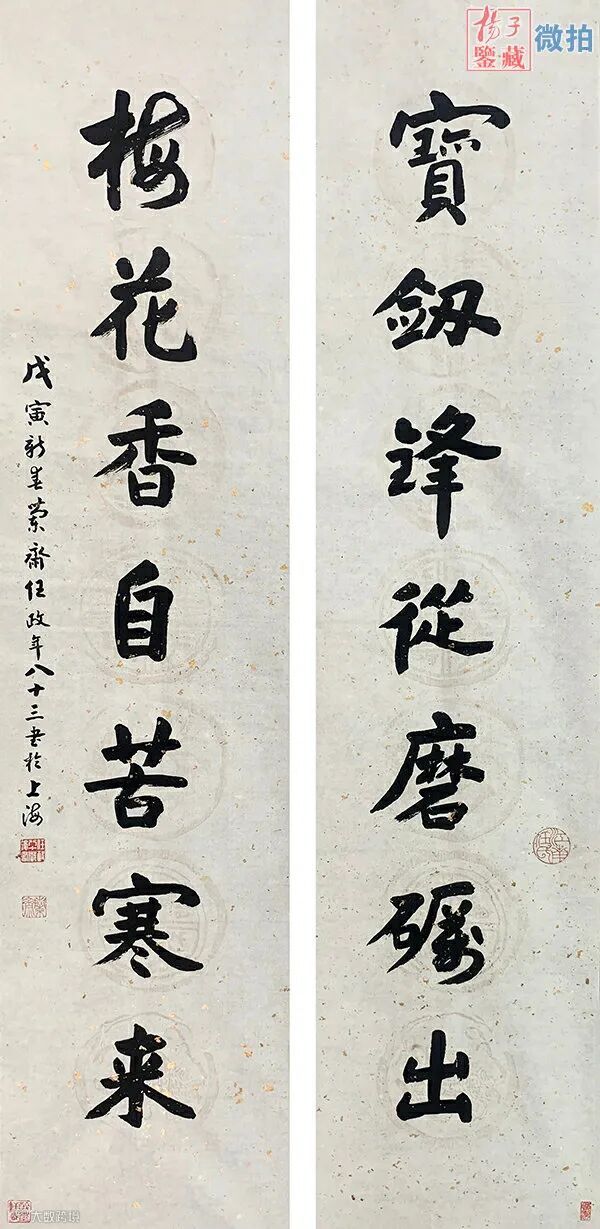 楊子
鑒藏
微拍
寶劔鋒從磨礪出
梅花香自苦寒来
戊寅新春蘭齋任政年八十三書於上海
大数跨境